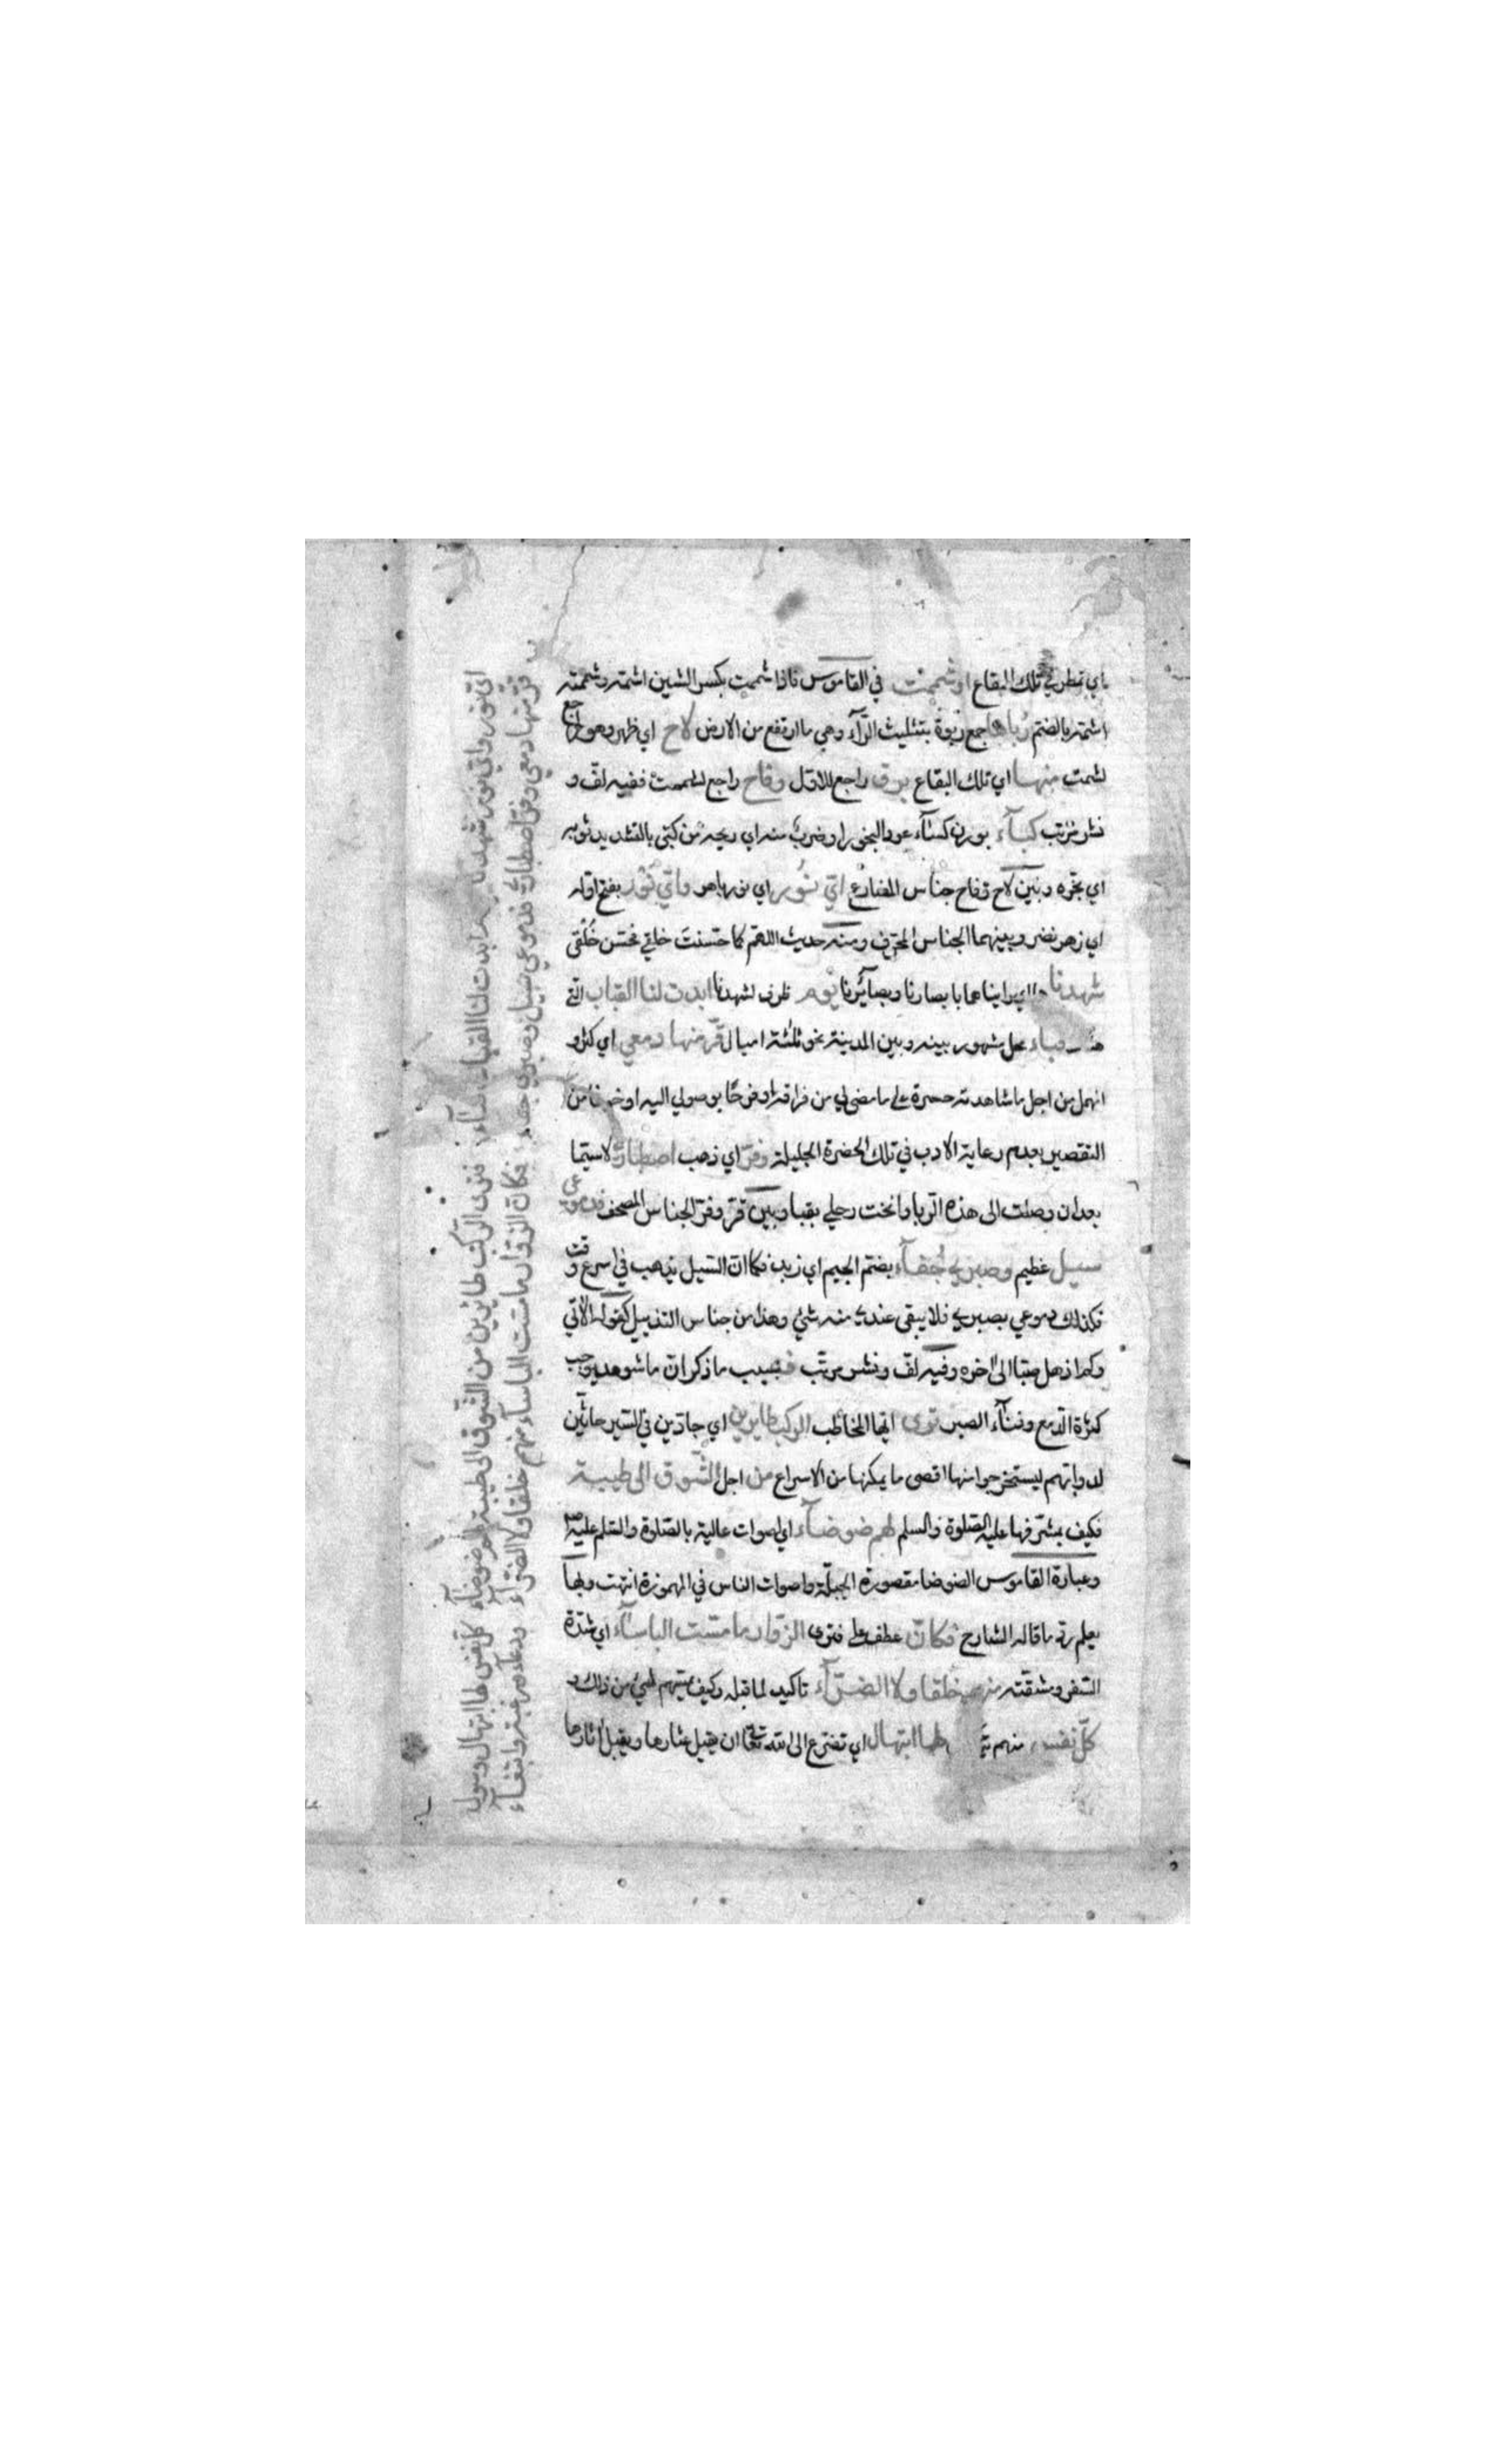 اي تمطر في تلك البقاع او شممت في القاموس فاذا شممت بكسر الشين اشمه وشممته
اشمه بالضم رباها جمع ربوة بتثليث الرآء وهي ما ارتفع من الارض لاح اي ظهر وهو راجع
لشمت منها اي تلك البقاع برق راجع للاول وفاح راجع لشممت ففيه لف و
نشر مرتب كبآء بوزن كسآء عود البخور او ضرب منه اي ريحه من كبى بالتشديد ثوبه
اي بخره وبين لاح وفاح جناس المضارع اي نور اي نور باهر واي نور بفتح اوله
اي زهر نضر وبينهما الجناس المحرف ومنه حديث اللهم كما حسنت خلقي فحسن خلقي
شهدنا اي راينا بابصارنا وبصائرنا يوم ظرف لشهدنا ابدت لنا القباب التي
قباء محل مشهور بينه وبين المدينة نحو ثلثة اميال قر منها دمعي اي كثر و
انهمل من اجل ما شاهدته حسرة على ما مضى لي من فراقه او فرحا بوصولي اليه او خوفا من
التقصير بعدم رعاية الادب في تلك الحضرة الجليلة وفر اي ذهب اصطباري لا سيما
بعد ان وصلت الى هذه الربا وانخت رحلي بقبا وبين قر وفر الجناس المصحف فدموعي
سيل عظيم وصبري جفآء بضم الجيم اي زبد فكما ان السيل يذهب في اسرع وقت
فكذلك دموعي بصبري فلا يبقى عندي منه شئ وهذا من جناس التذييل كقوله الآتي
وكما اذهل صبا الى اخره وفيه لف ونشر مرتب فبسبب ما ذكر ان ما شوهد يوجب
كثرة الدمع وفنآء الصبر ترى ايها المخاطب الركب طايرين اي جادين في السير حاثين
لدوابهم ليستخرجوا منها اقصى ما يمكنها من الاسراع من اجل الشوق الى طيبة
فكيف بمشرفها عليه الصلوة والسلم لهم ضوضآء اي اصوات عالية بالصلوة والسلم عليه
وعبارة القاموس الضوضا مقصورة الجلبة واصوات الناس في المهموزة انتهت وبها
يعلم رد ما قاله الشارح فكان عطف على فترى الزوار ما مست الباسآء اي شدة
السفر ومشقته منهم خلقا ولا الضرآء تاكيد لما قبله وكيف يمسهم شئ من ذلك و
كل نفس منهم لها ابتهال اي تضرع الى الله تعالى ان يقيل عثارها ويقبل
اي نور واي نور شهدنا يوم ابدت لنا القباب قبآء فترى الركب طائرين من الشوق الى طيبة لهم ضوضآء كل نفس لها ابتهال وسول
قر منها دمعي وفر اصطباري فدموعي سيل وصبري جفآء فكان الزوار ما مست الباسآء منهم خلقا ولا الضرآء ودعآء ورغبة وابتغآء